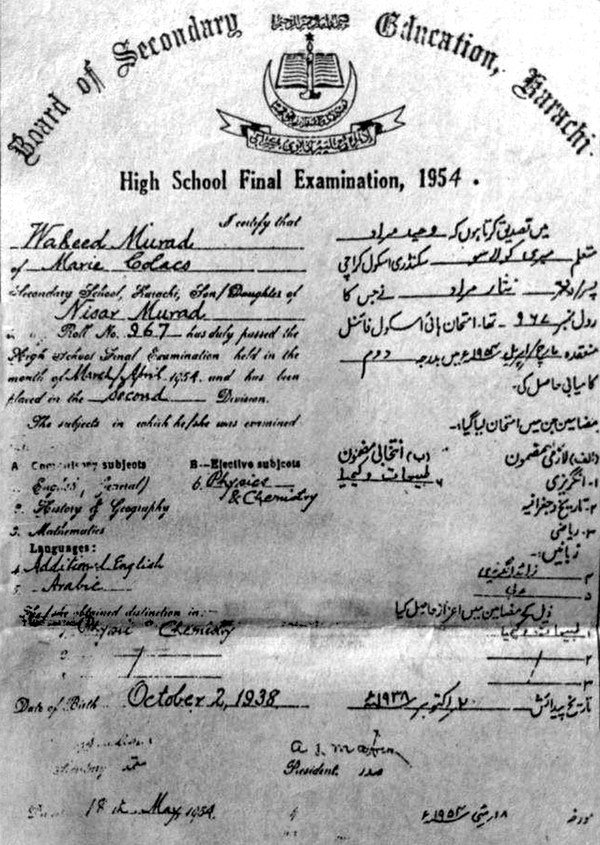 Board of Secondary Education, Karachi.
High School Final Examination, 1954.
I certify that
Waheed Murad
of Marie Colacs
Secondary School, Karachi, Son/Daughter of
Nisar Murad
Roll No. 967 has duly passed the
High School Final Examination held in the
month of March/April 1954. and has been
placed in the Second Division.
The subjects in which he/she was examined
A Compulsory subjects B—Elective subjects
English (General) 6. Physics
& Chemistry
2. History & Geography
3. Mathematics
Languages:
4. Additional English
5. Arabic
He/she obtained distinction in:—
1. Physic Chemistry
Date of Birth October 2, 1938
President صدر
معتمد
18th May, 1954.
میں تصدیق کرتا ہوں کہ وحید مراد
متعلم میری کولاسو سکنڈری اسکول کراچی
پسر/دختر نثار مراد نے جس کا
رول نمبر ۹۶۷ تھا۔ امتحان ہائی اسکول فائنل
منعقدہ مارچ/اپریل ۱۹۵۴ء میں بدرجہ دوم
کامیابی حاصل کی۔
مضامین جن میں امتحان لیا گیا:۔
(الف) لازمی مضمون (ب) انتخابی مضمون
۱۔ انگریزی ۶ طبیعات و کیمیا
۲۔ تاریخ و جغرافیہ
۳۔ ریاضی
زبانیں:۔
۴ زائد انگریزی
۵ عربی
ذیل کے مضامین میں اعزاز حاصل کیا
۱ طبیعات و کیمیا
۲
۳
تاریخ پیدائش ۲ اکتوبر ۱۹۳۸ء
مورخہ ۱۸ مئی ۱۹۵۴ء